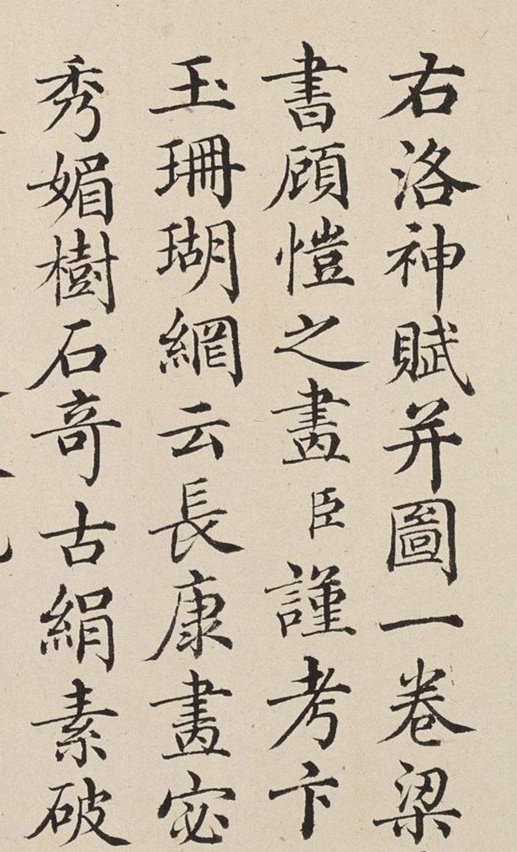 右洛神賦并圖一卷梁
書顧愷之畫臣謹考卞
玉珊瑚網云長康畫宓
秀媚樹石奇古絹素破